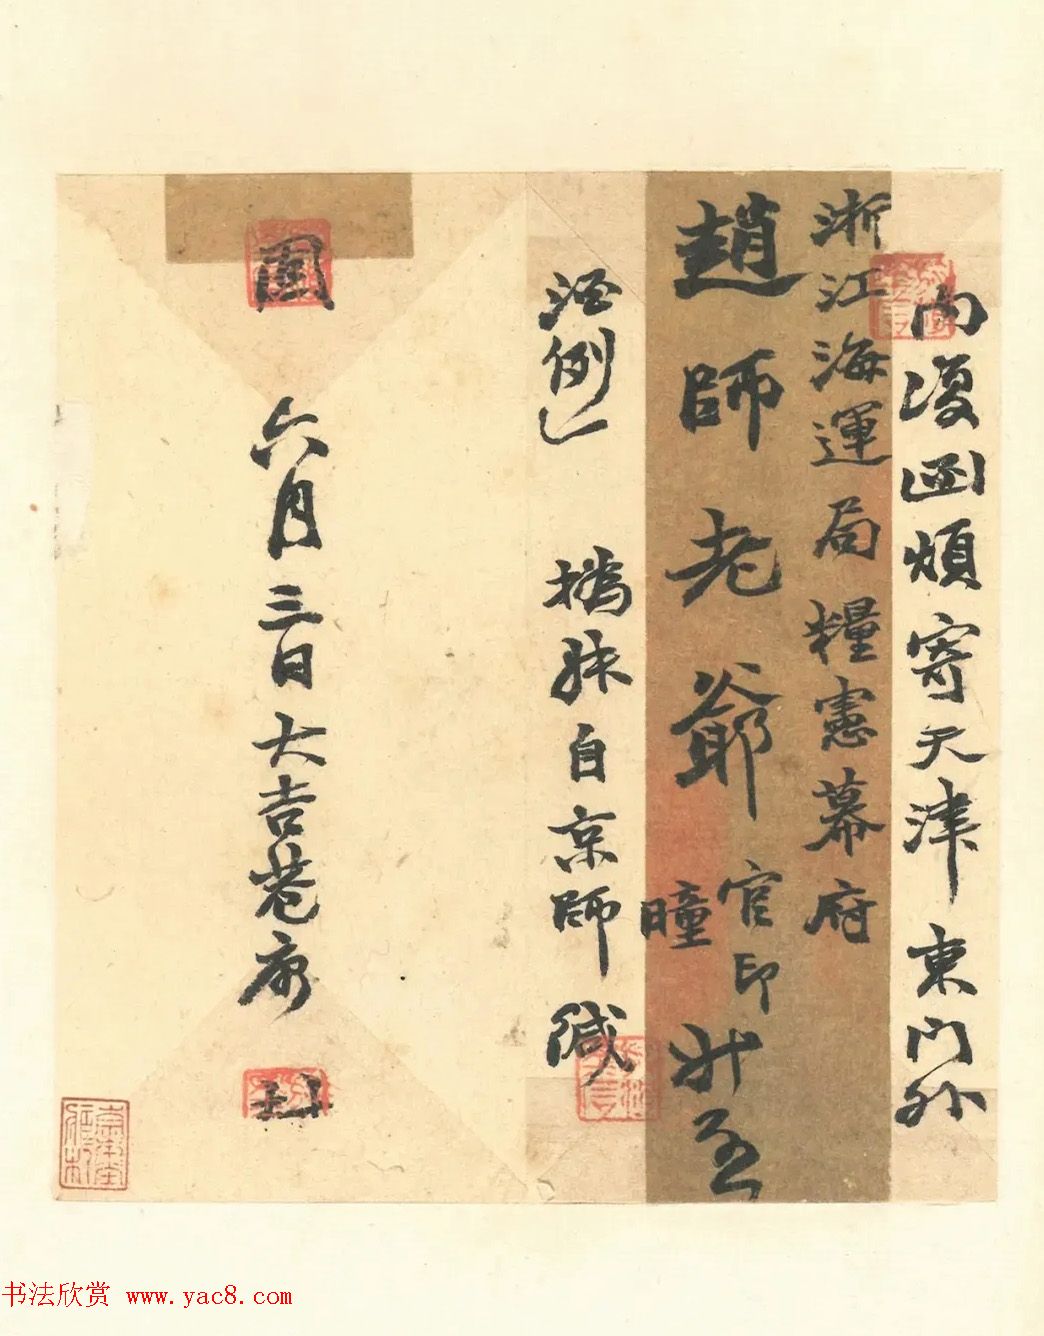 內復函煩寄天津東門外
浙江海運局糧憲幕府
趙師老爺 官印 瞳 升
酒例 撝叔自京師緘
六月三日大吉巷寓
书法欣赏 www.yac8.com